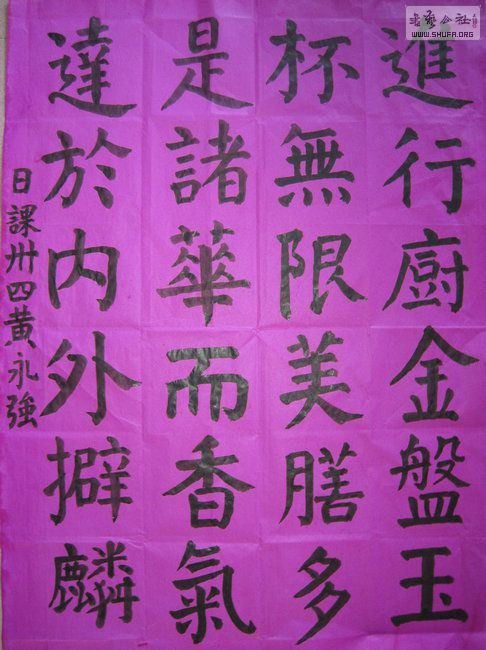 進行廚金盤玉
杯無限美膳多
是諸華而香氣
達於内外擗麟
日課卅四黄永強
書藝公社
WWW.SHUFA.ORG